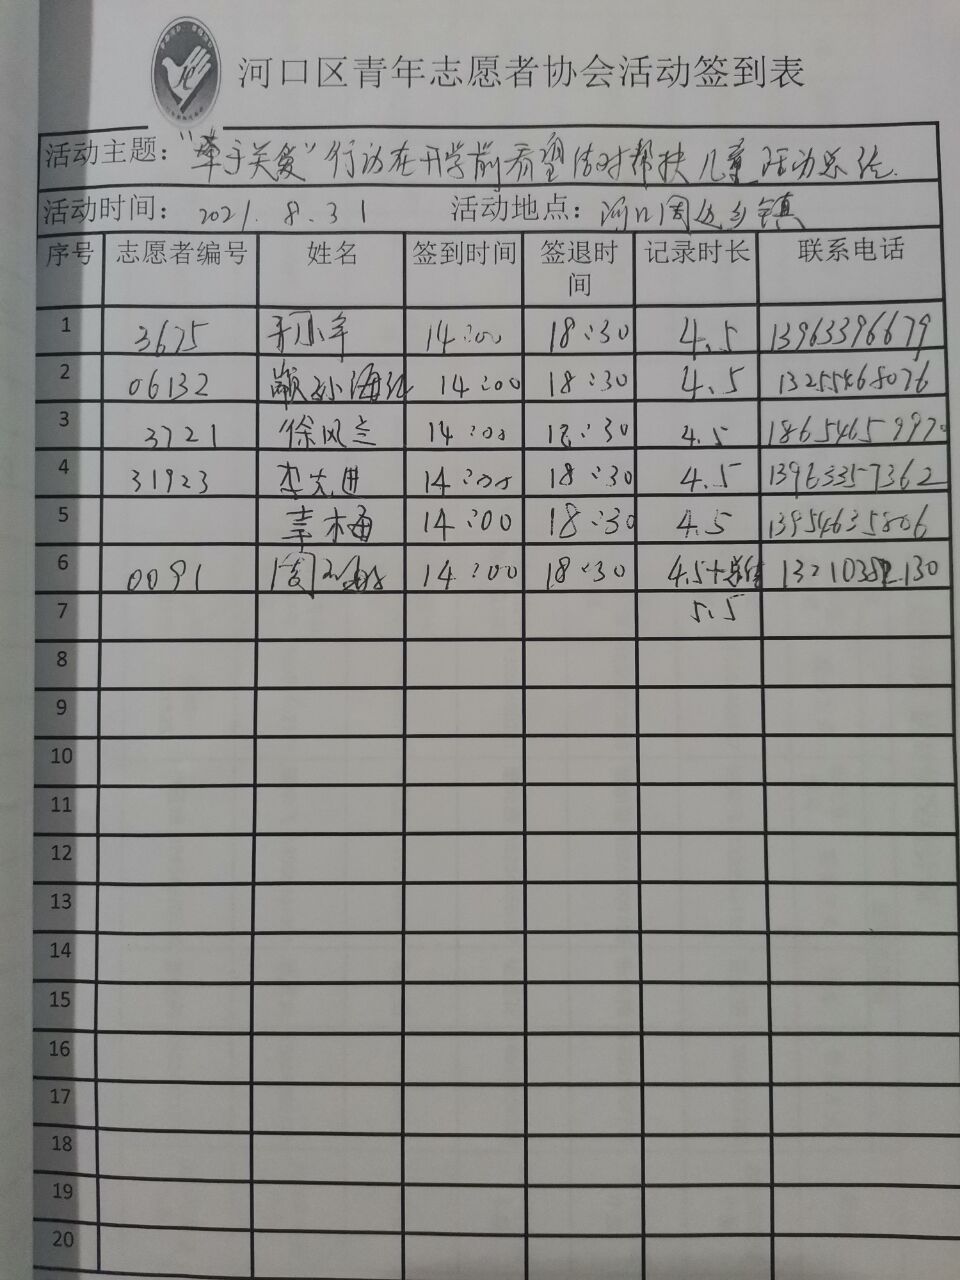 河口区青年志愿者协会活动签到表
活动主题:"牵手关爱"行动在开学前看望结对帮扶儿童活动总结.
活动时间: 2021.8.31 活动地点: 河口周边乡镇
序号 志愿者编号 姓名 签到时间 签退时间 记录时长 联系电话
1 3675 14:00 18:30 4.5 13963396679
2 06132 颛孙海红 14:00 18:30 4.5 13255468076
3 3721 徐风兰 14:00 18:30 4.5 1865465997
4 31923 李先进 14:00 18:30 4.5 13963357362
5 李梅 14:00 18:30 4.5 13954635806
6 0091 周 14:00 18:30 4.5+总结 13210382130
7 5.5
8
9
10
11
12
13
14
15
16
17
18
19
20